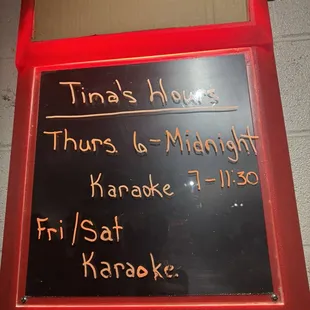 Tina's Hours
Thurs 6-Midnight
Karaoke 7-11:30
Fri/Sat
Karaoke.